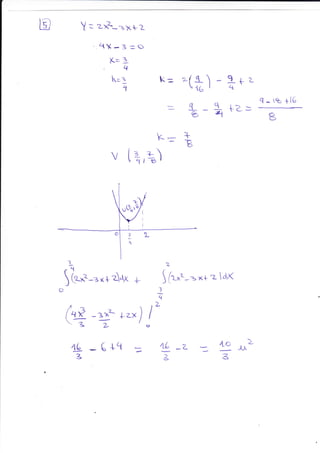 5 y = 2x² - 3x + 2
4x - 3 = 0
x = 3/4
h = 3/4 k = 2(9/16) - 9/4 + 2
= 9/8 - 9/4 + 2 = (9 - 18 + 16)/8
k = 7/8
V (3/4, 7/8)
V(3/4, 7/8)
0 3/4 2
∫₀^(3/4) (2x² - 3x + 2)dx + ∫_(3/4)^2 (2x² - 3x + 2)dx
(4x³/3 - 3x²/2 + 2x) /₀²
16/3 - 6 + 4 = 16/3 - 2 = 10/3 u²